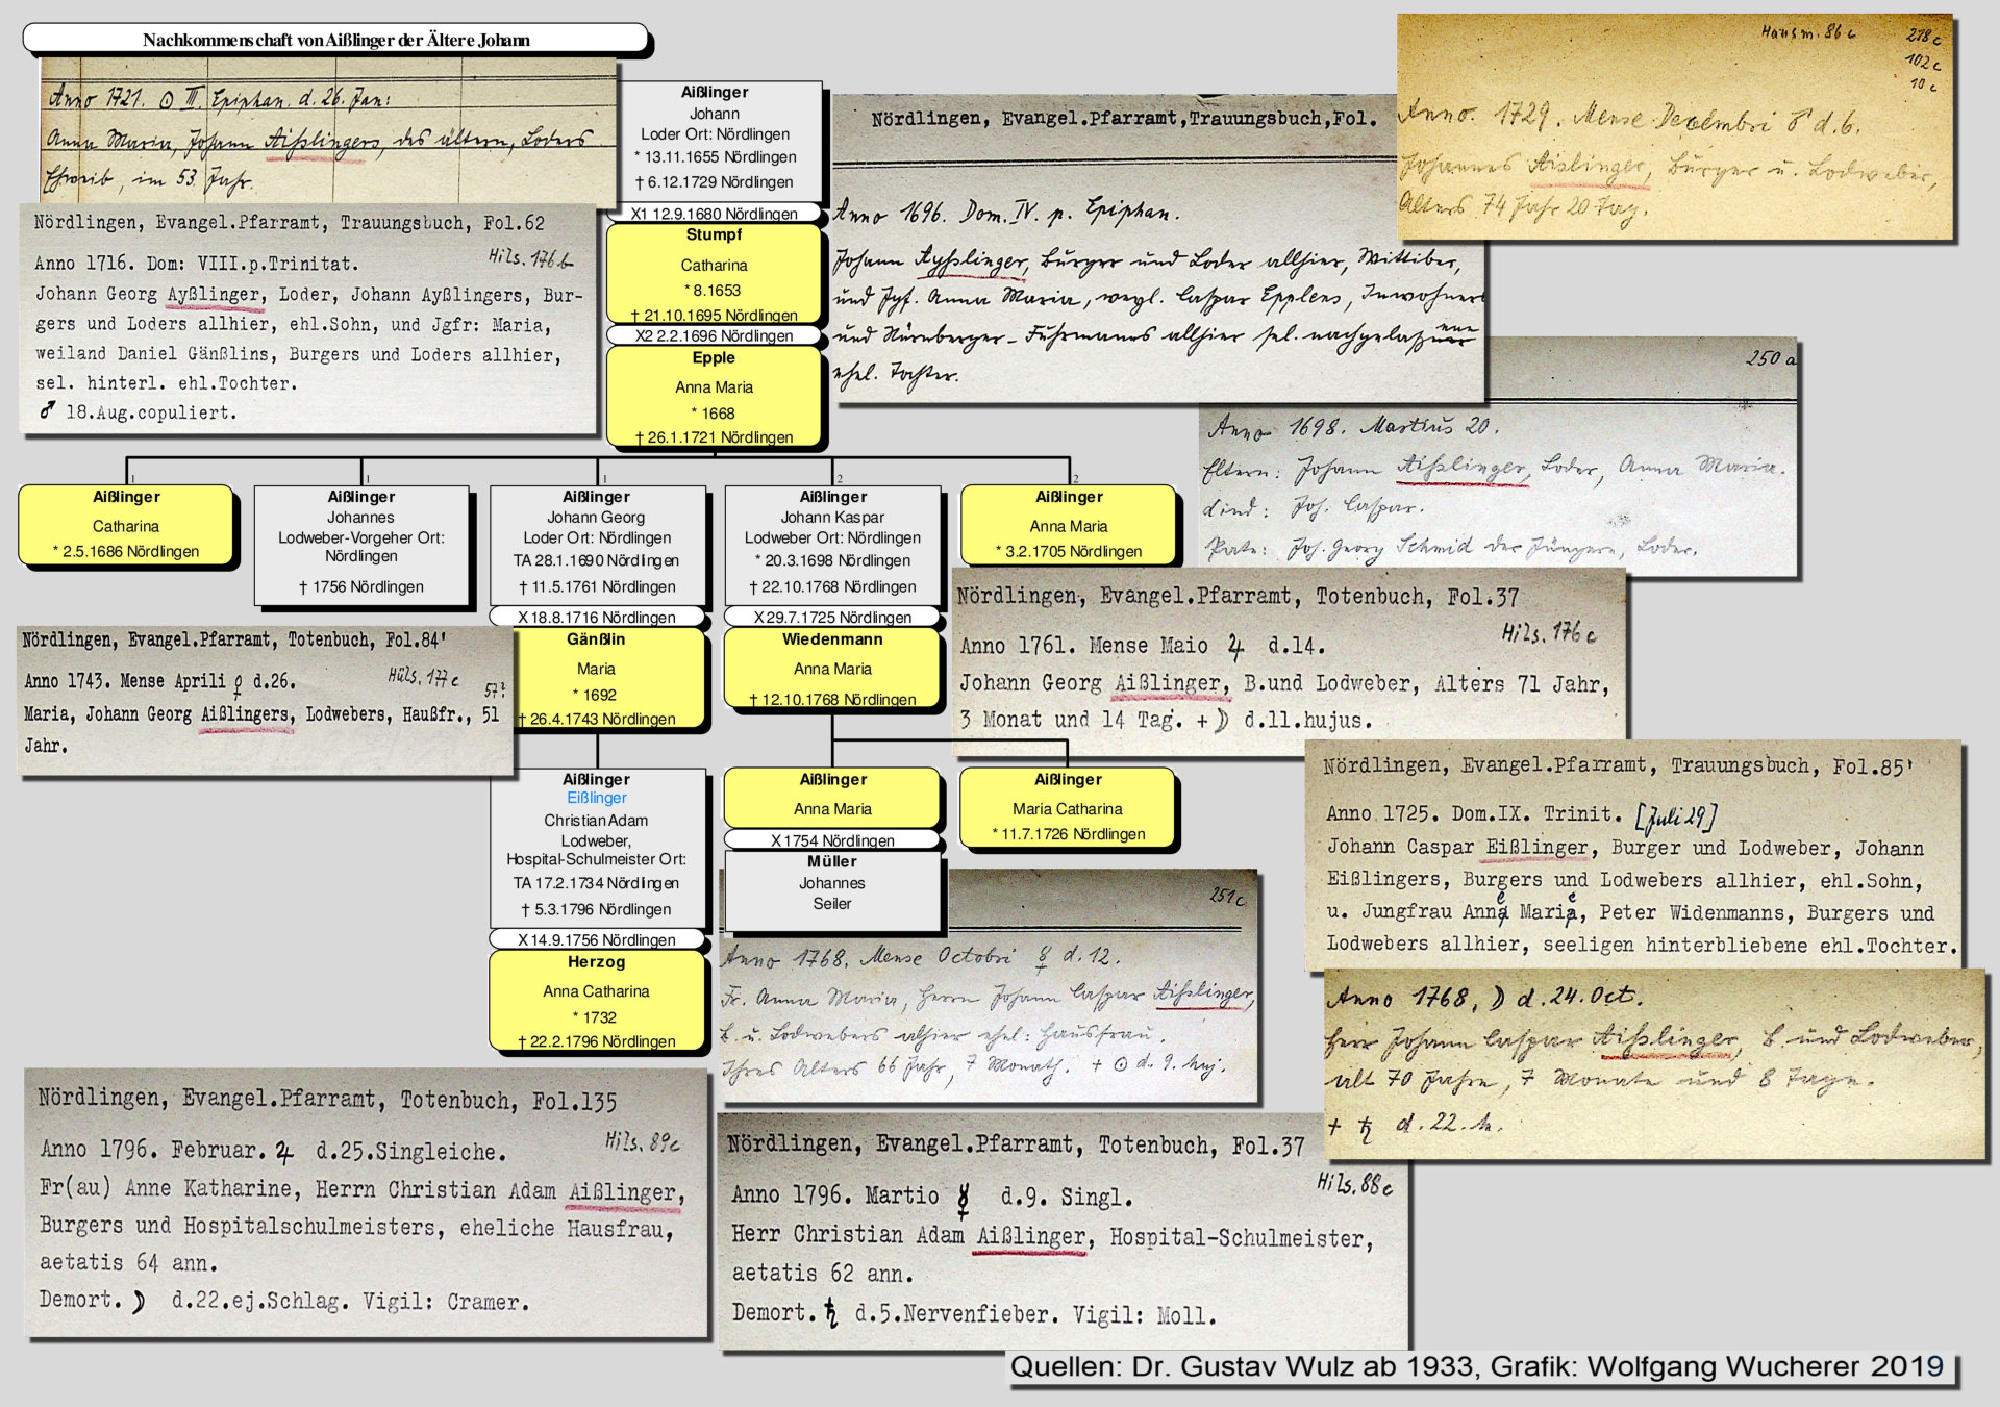 Nachkommenschaft von Aißlinger der Ältere Johann
Anno 1721. ☉ III. Epiphan. d. 26. Jan:
Anna Maria, Johann Aißlingers, des ältern, Loders
Eheweib, im 53. Jahr.
Nördlingen, Evangel.Pfarramt, Trauungsbuch, Fol.62
Hils. 176 b
Anno 1716. Dom: VIII.p.Trinitat.
Johann Georg Ayßlinger, Loder, Johann Ayßlingers, Bur-
gers und Loders allhier, ehl.Sohn, und Jgfr: Maria,
weiland Daniel Gänßlins, Burgers und Loders allhier,
sel. hinterl. ehl.Tochter.
♂ 18.Aug.copuliert.
Aißlinger
Johann
Loder Ort: Nördlingen
* 13.11.1655 Nördlingen
† 6.12.1729 Nördlingen
X1 12.9.1680 Nördlingen
Stumpf
Catharina
* 8.1653
† 21.10.1695 Nördlingen
X2 2.2.1696 Nördlingen
Epple
Anna Maria
* 1668
† 26.1.1721 Nördlingen
Nördlingen, Evangel.Pfarramt,Trauungsbuch,Fol.
Anno 1696. Dom. IV. p. Epiphan.
Johann Ayßlinger, Burger und Loder allhier, Wittiber,
und Jgf. Anna Maria, weyl. Caspar Epplens, Inwohners
und Nürnberger-Fuhrmanns allhier sel. nachgelaßene
ehel. Tochter.
Hausm. 86 c
218 c
102 c
10 c
Anno. 1729. Mense Decembri ♂ d. 6.
Johannes Aislinger, Burger u. Lodweber,
Alters 74 Jahr 20 Tag.
250 a
Anno 1698. Martius 20.
Eltern: Johann Aißlinger, Loder, Anna Maria.
Kind: Joh. Caspar.
Pate: Joh. Georg Schmid der Jüngere, Loder.
1
1
1
2
2
Aißlinger
Catharina
* 2.5.1686 Nördlingen
Aißlinger
Johannes
Lodweber-Vorgeher Ort:
Nördlingen
† 1756 Nördlingen
Aißlinger
Johann Georg
Loder Ort: Nördlingen
TA 28.1.1690 Nördlingen
† 11.5.1761 Nördlingen
X 18.8.1716 Nördlingen
Gänßlin
Maria
* 1692
† 26.4.1743 Nördlingen
Aißlinger
Johann Kaspar
Lodweber Ort: Nördlingen
* 20.3.1698 Nördlingen
† 22.10.1768 Nördlingen
X 29.7.1725 Nördlingen
Wiedenmann
Anna Maria
† 12.10.1768 Nördlingen
Aißlinger
Anna Maria
* 3.2.1705 Nördlingen
Nördlingen, Evangel.Pfarramt, Totenbuch, Fol.84'
Hüls. 177 c
Anno 1743. Mense Aprili ♀ d.26.
57?
Maria, Johann Georg Aißlingers, Lodwebers, Haußfr., 51
Jahr.
Nördlingen, Evangel.Pfarramt, Totenbuch, Fol.37
Hils. 176 c
Anno 1761. Mense Maio ♃ d.14.
Johann Georg Aißlinger, B.und Lodweber, Alters 71 Jahr,
3 Monat und 14 Tag. + ☽ d.11.hujus.
Nördlingen, Evangel.Pfarramt, Trauungsbuch, Fol.85'
Anno 1725. Dom.IX. Trinit. [Juli 29]
Johann Caspar Eißlinger, Burger und Lodweber, Johann
Eißlingers, Burgers und Lodwebers allhier, ehl.Sohn,
u. Jungfrau Anna Maria, Peter Widenmanns, Burgers und
Lodwebers allhier, seeligen hinterbliebene ehl.Tochter.
Aißlinger
Eißlinger
Christian Adam
Lodweber,
Hospital-Schulmeister Ort:
TA 17.2.1734 Nördlingen
† 5.3.1796 Nördlingen
X 14.9.1756 Nördlingen
Herzog
Anna Catharina
* 1732
† 22.2.1796 Nördlingen
Aißlinger
Anna Maria
X 1754 Nördlingen
Müller
Johannes
Seiler
Aißlinger
Maria Catharina
* 11.7.1726 Nördlingen
251 c
Anno 1768, Mense Octobri ☿ d. 12.
Fr. Anna Maria, Herrn Johann Caspar Aißlinger,
B. u. Lodwebers alhier ehel: Hausfrau.
Ihres Alters 66 Jahr, 7 Monath. + ☉ d. 9. huj.
Anno 1768, ☽ d. 24. Oct.
Herr Johann Caspar Aißlinger, B. und Lodweber,
alt 70 Jahre, 7 Monate und 8 Tage.
+ ♄ d. 22. h.
Nördlingen, Evangel.Pfarramt, Totenbuch, Fol.135
Hils. 89c
Anno 1796. Februar. ♃ d.25.Singleiche.
Fr(au) Anne Katharine, Herrn Christian Adam Aißlinger,
Burgers und Hospitalschulmeisters, eheliche Hausfrau,
aetatis 64 ann.
Demort. ☽ d.22.ej.Schlag. Vigil: Cramer.
Nördlingen, Evangel.Pfarramt, Totenbuch, Fol.37
Hils. 88c
Anno 1796. Martio ☿ d.9. Singl.
Herr Christian Adam Aißlinger, Hospital-Schulmeister,
aetatis 62 ann.
Demort. ♄ d.5.Nervenfieber. Vigil: Moll.
Quellen: Dr. Gustav Wulz ab 1933, Grafik: Wolfgang Wucherer 2019